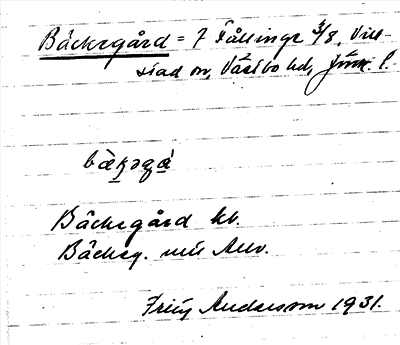 Bäckegård = 7 Tållinge 3/8, Vill-
stad sn, Västbo hd, Jönk. l.
bàkəga
Bäckegård kb.
Bäckeg.
Fritz Andersson 1931.